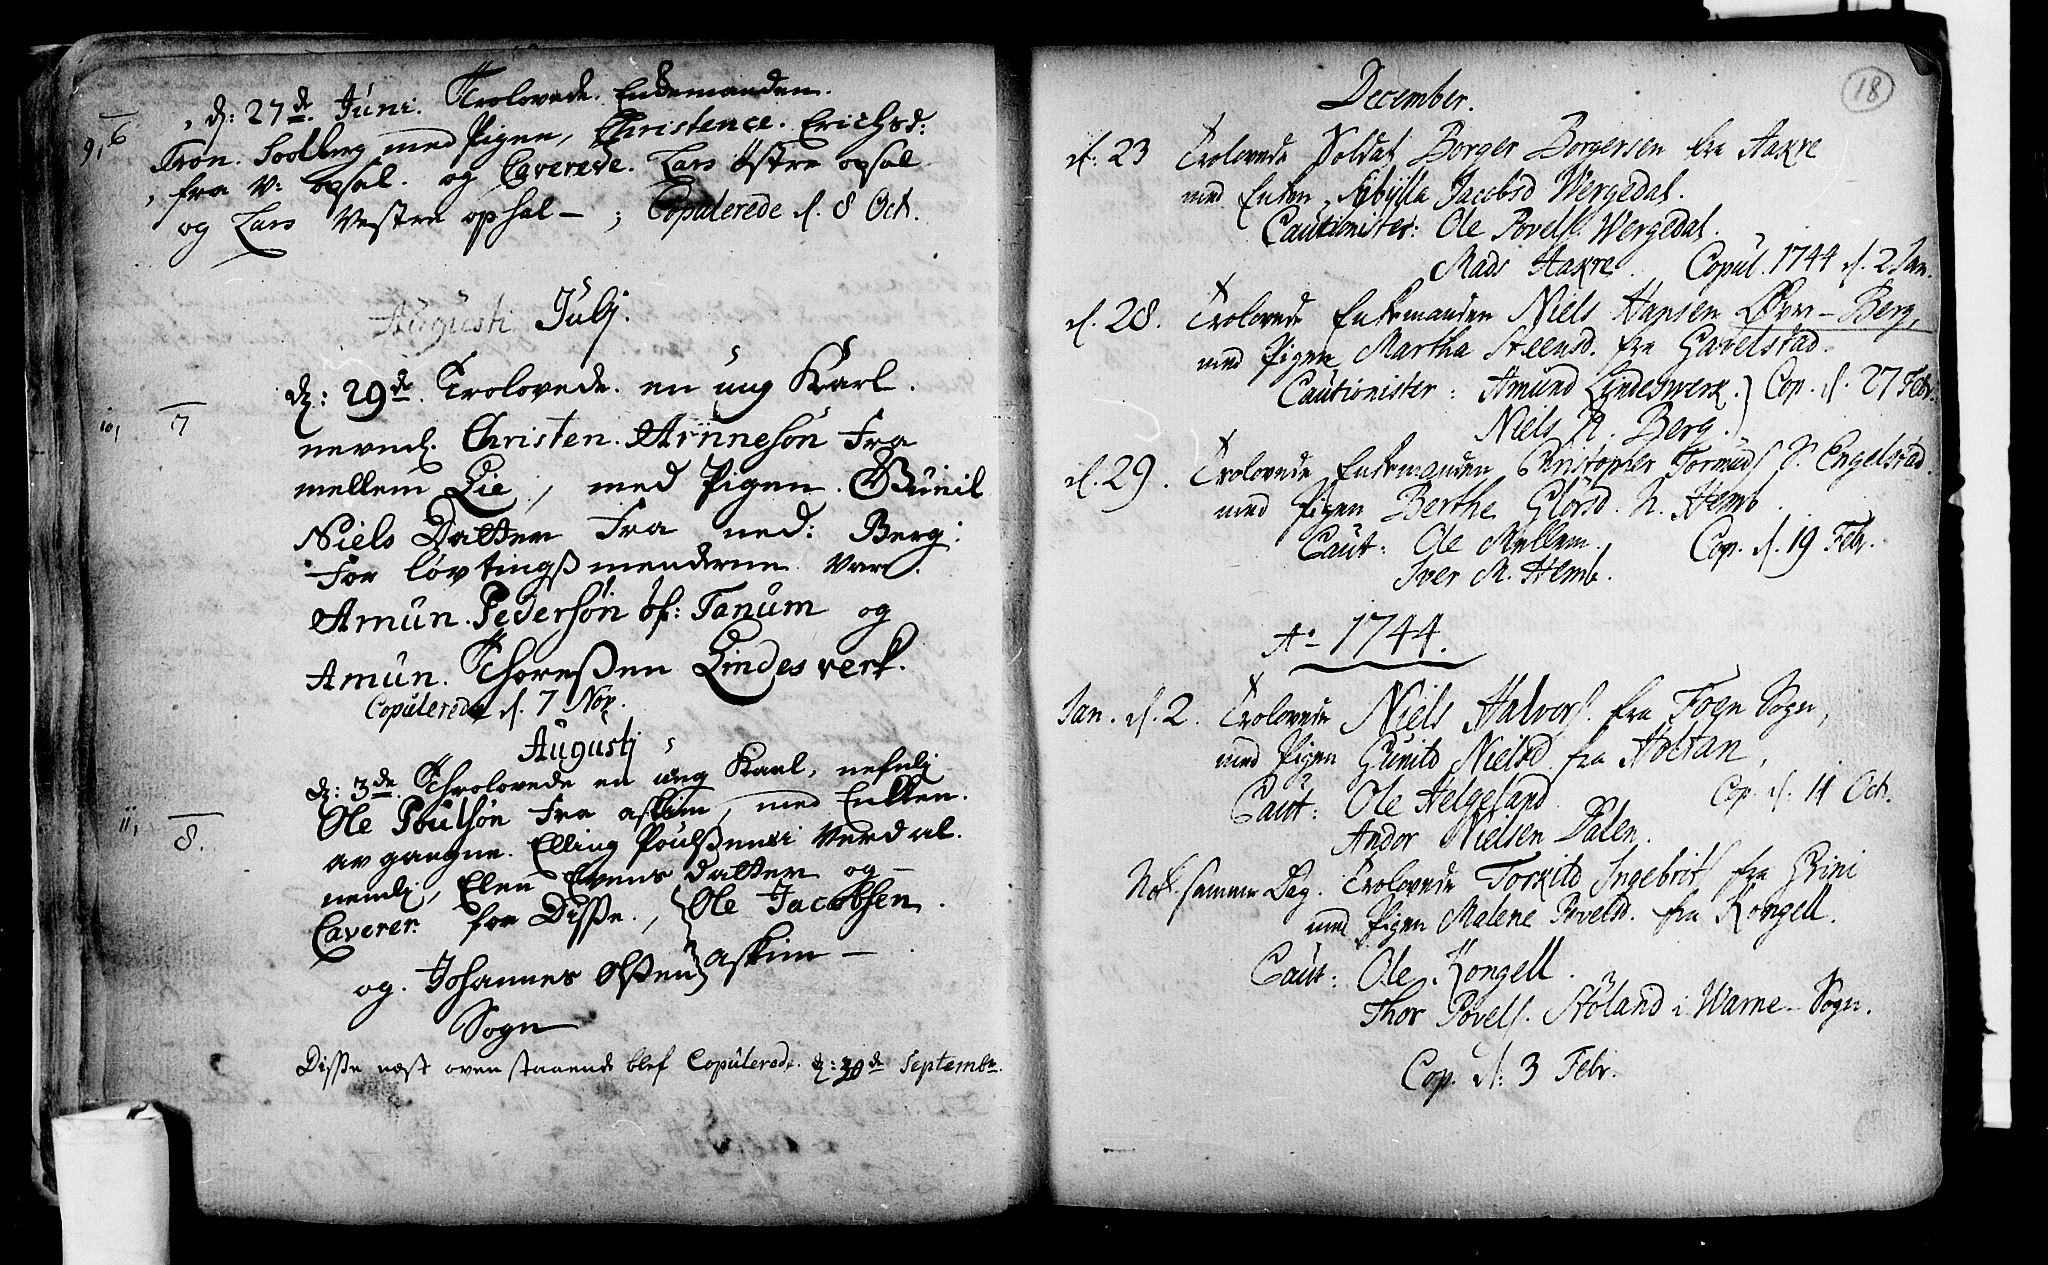 9, 6
d: 27de Juni. Trolovede. Enckemanden.
Tron. Soolberg med Pigen, Christence. Erichsd:
fra V: opsal. og Caverede. Lars östre opsal
og Lars Vestre ophsal – ; Copulerede d. 8 Oct.
Augusti Julj.
10, 7
d: 29de. Trolovede. en ung Karl.
nevnd. Christen. Arnneson Fra
mellem Lie, med Pigen. Gunil
Niels Datter Fra ned: Berg:
For løvtingsmenderne vare.
Amun. Pederson öf: Tanum og
Amun. Thoreßen Lindesverk.
Copulerede d. 7 Nov.
Augustj
11, 8.
d: 3de. Throlovede en ung Karl, nefnlj
Ole Poulson Fra askim, med Encken.
av gangne. Elling Poulßens i Verdal.
nemlj, Elen Evens datter og –
Caverer. for Disse., Ole Jacobsen.
og. Johannes Olßen askim –
Sogn
Disse nest oven staaende blef Copulerede. d: 30de Septembr.
18
December.
d: 23 Trolovede Soldat Borger Borgersen fra Haxre
med Enken Sibylla Jacobsd Wergedal.
Cautionister: Ole Povels. Wergedal.
Mads Haxre. Copul. 1744 d. 2 Jan.
d. 28. Trolovede Enkemanden Niels Hansen Øvre-Berg,
med Pigen Martha Steensd. fra Gavelstad.
Cautionister: Amund Lindeswerk. Cop. d. 27 Febr.
Niels N. Berg.
d. 29. Trolovede Enkemanden Christopher Tormods S. Engelstad.
med Pigen Berthe Glörsd. N. Hemb.
Caut: Ole Mellem. Cop. d. 19 Febr.
Iver M. Hemb.
Ao 1744.
Jan. d. 2. Trolovede Niels Halvors. fra Foen Sogn,
med Pigen Gunild Nielsd fra Holtan,
Caut: Ole Helgeland. Cop. d: 11 Oct.
Andor Nielsen Dalen.
Nok samme Dag. Trolovede Torkild Ingebröts. fra Grini
med Pigen Malene Povelsd. fra Kongell.
Caut: Ole Kongell.
Thor Povels. Stöland i Warne-Sogn.
Cop. d: 3 Febr.